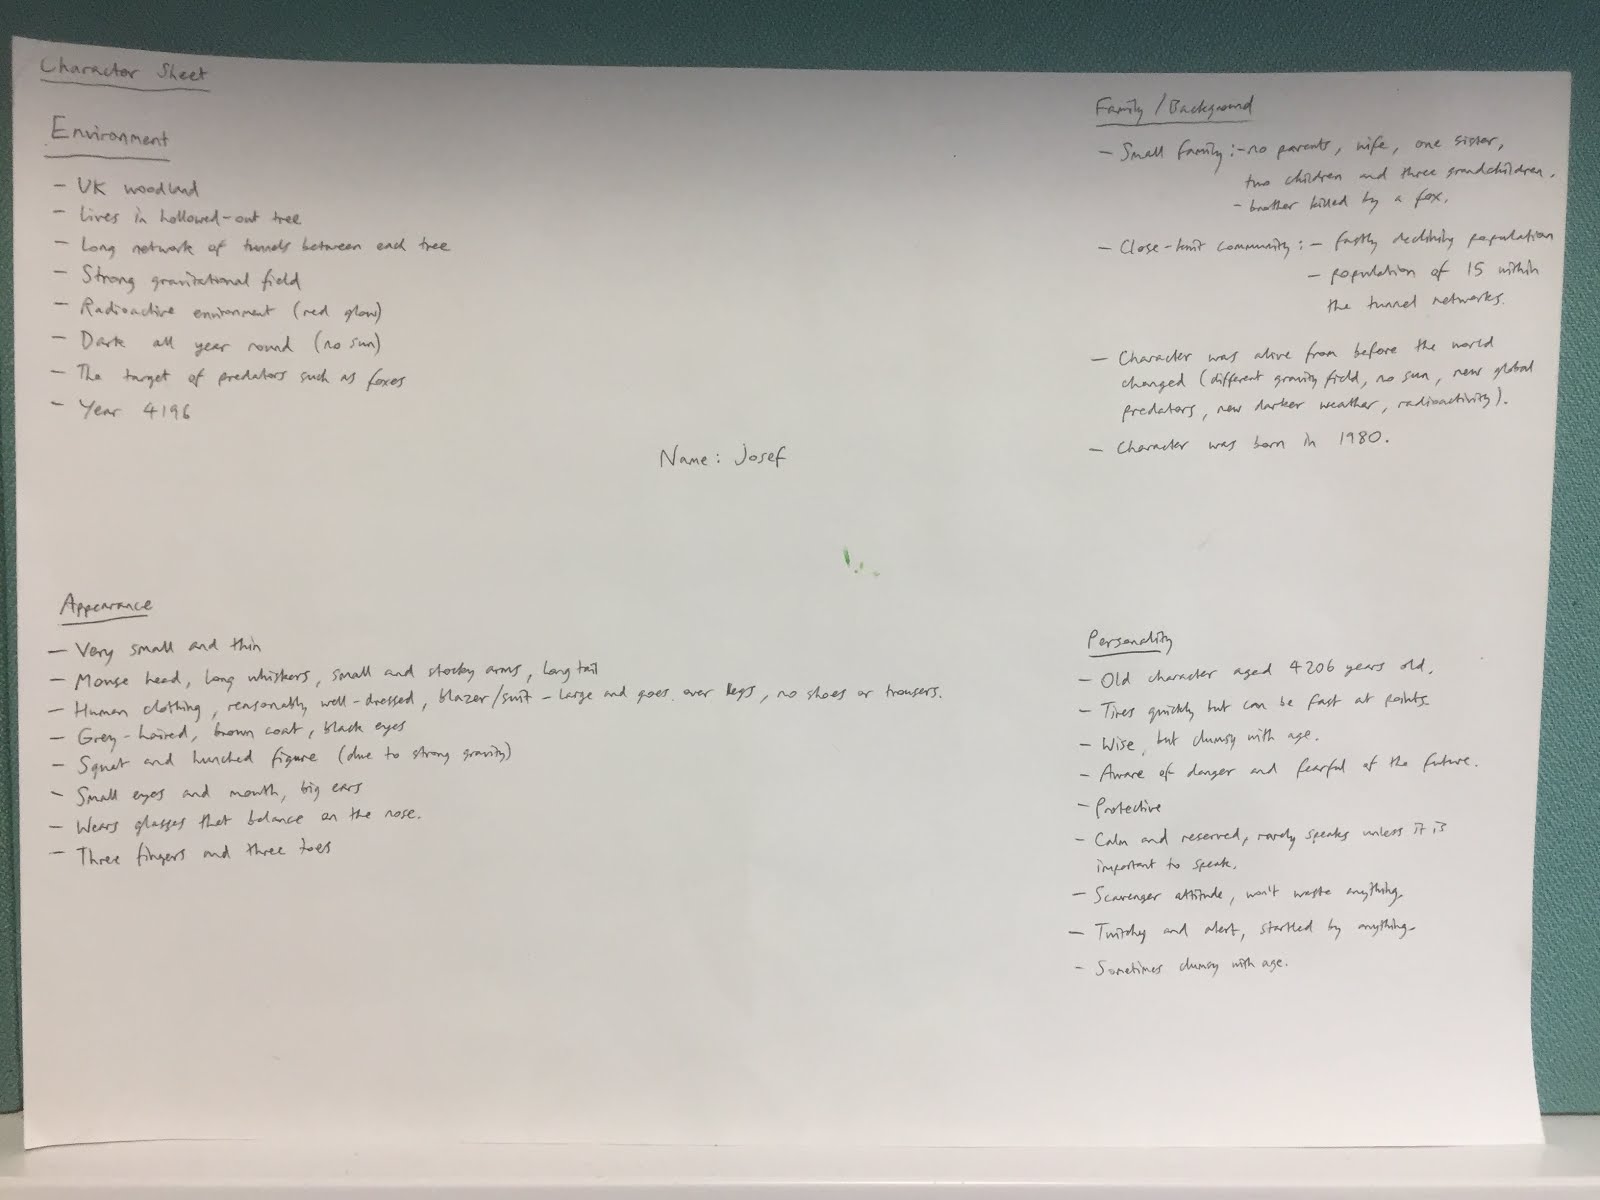 Character Sheet
Environment
- UK woodland
- Lives in hollowed-out tree
- Long network of tunnels between each tree
- Strong gravitational field
- Radioactive environment (red glow)
- Dark all year round (no sun)
- The target of predators such as foxes
- Year 4196
Name: Josef
Family / Background
- Small family: - no parents, wife, one sister,
two children and three grandchildren.
- brother killed by a fox.
- Close-knit community: - fastly declining population
- population of 15 within
the tunnel networks.
- Character was alive from before the world
changed (different gravity field, no sun, new global
predators, new darker weather, radioactivity).
- Character was born in 1980.
Appearance
- Very small and thin
- Mouse head, long whiskers, small and stocky arms, long tail
- Human clothing, reasonably well-dressed, blazer/suit - large and goes over legs, no shoes or trousers.
- Grey-haired, brown coat, black eyes
- Squat and hunched figure (due to strong gravity)
- Small eyes and mouth, big ears
- Wears glasses that balance on the nose.
- Three fingers and three toes
Personality
- Old character aged 4206 years old.
- Tires quickly but can be fast at points.
- Wise, but clumsy with age.
- Aware of danger and fearful of the future.
- Protective
- Calm and reserved, rarely speaks unless it is
important to speak.
- Scavenger attitude, won't waste anything.
- Twitchy and alert, startled by anything.
- Sometimes clumsy with age.